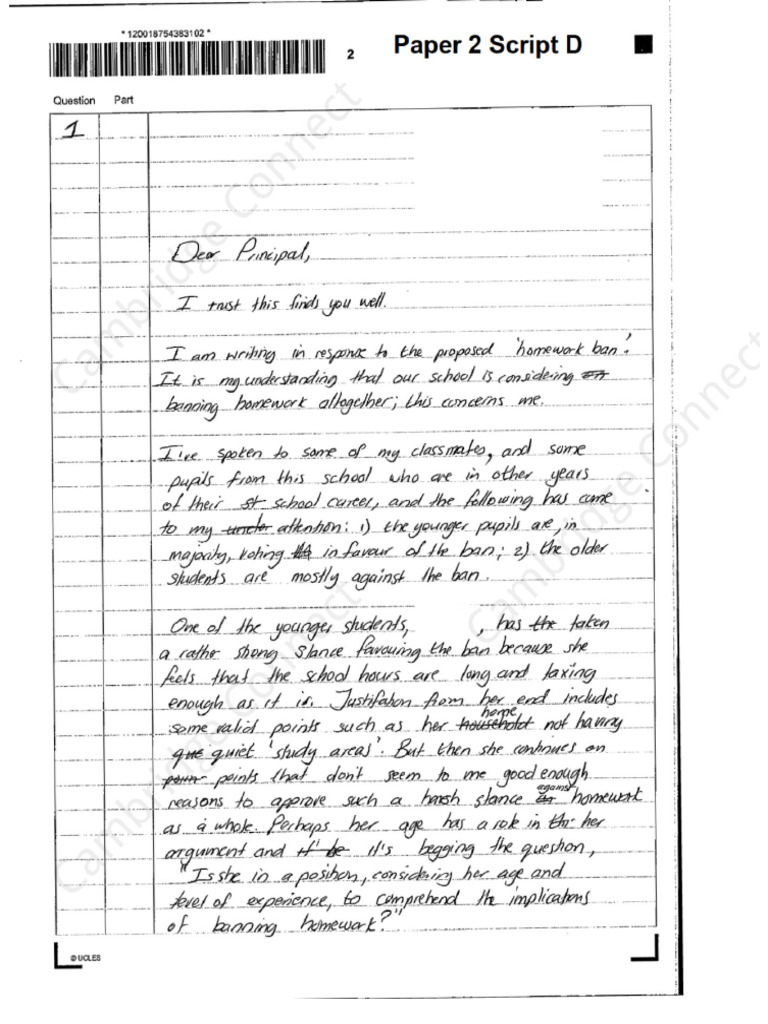 * 120018754383102 *
2
Paper 2 Script D
Question Part
1
Dear Principal,
I trust this finds you well.
I am writing in response to the proposed 'homework ban'.
It is my understanding that our school is considering
banning homework altogether; this concerns me.
I've spoken to some of my classmates, and some
pupils from this school who are in other years
of their st school career, and the following has come
to my under attention: 1) the younger pupils are, in
majority, voting in favour of the ban; 2) the older
students are mostly against the ban.
One of the younger students, , has the taken
a rather strong stance favouring the ban because she
feels that the school hours are long and taxing
enough as it is. Justifaton from her end includes
some valid points such as her household home not having
que quiet 'study areas'. But then she continues on
points that don't seem to me good enough
reasons to approve such a harsh stance against homework
as a whole. Perhaps her age has a role in her
argument and it's begging the question,
"Is she in a position, considering her age and
level of experience, to comprehend the implications
of banning homework?"
© UCLES
Cambridge Connect
Cambridge Connect
Cambridge Connect
Cambridge Connect